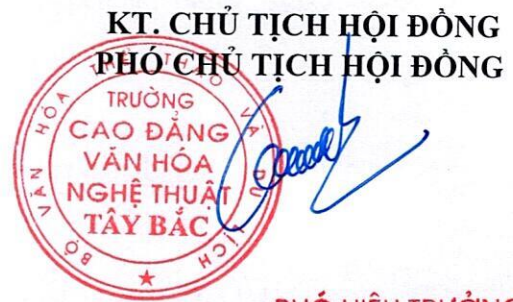 KT. CHỦ TỊCH HỘI ĐỒNG
PHÓ CHỦ TỊCH HỘI ĐỒNG
BỘ VĂN HÓA THỂ THAO VÀ DU LỊCH
TRƯỜNG
CAO ĐẲNG
VĂN HÓA
NGHỆ THUẬT
TÂY BẮC
PHÓ HIỆU TRƯỞNG